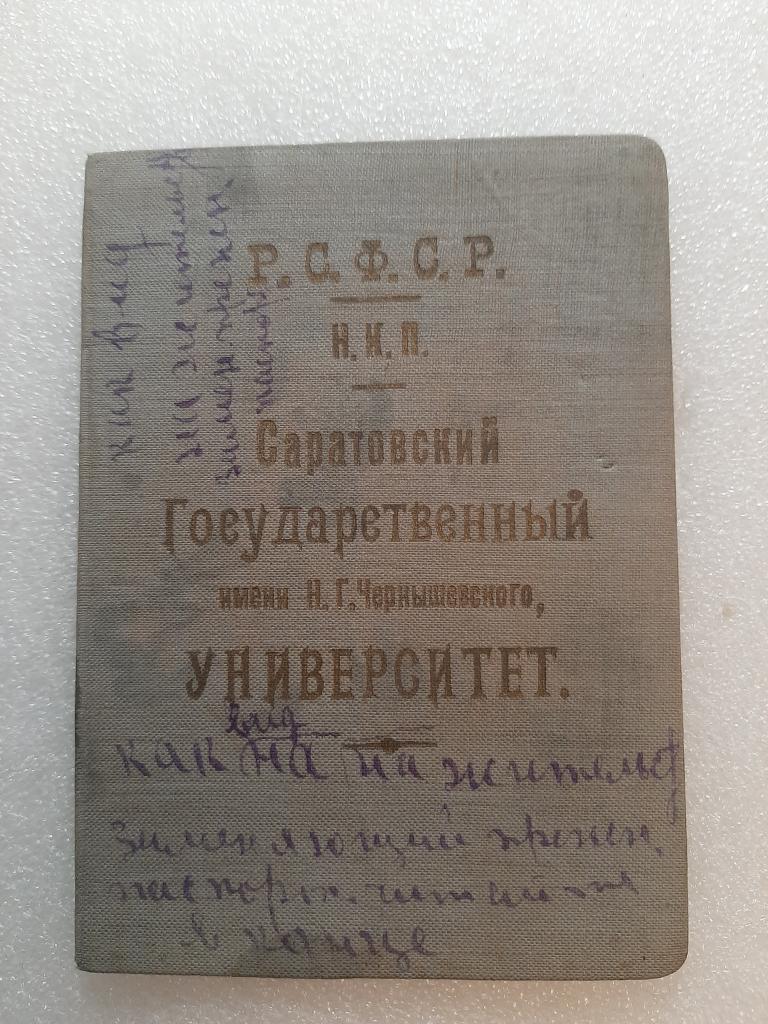 Р. С. Ф. С. Р.
Н. К. П.
Саратовский
Государственный
имени Н. Г. Чернышевского,
УНИВЕРСИТЕТ.
как вид
на жительс
паспорт
вид
как на на жительст
Заменяющий
паспорт. читай
в конце